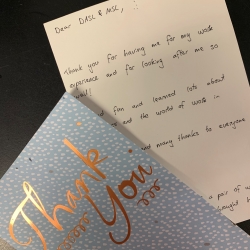 Dear DASL & MSL,
Thank you for having me for my work
experience and for looking after me so
well!
fun and learned lots about
and the world of work in
and many thanks to everyone
a pair of w
bought h
Thank
You